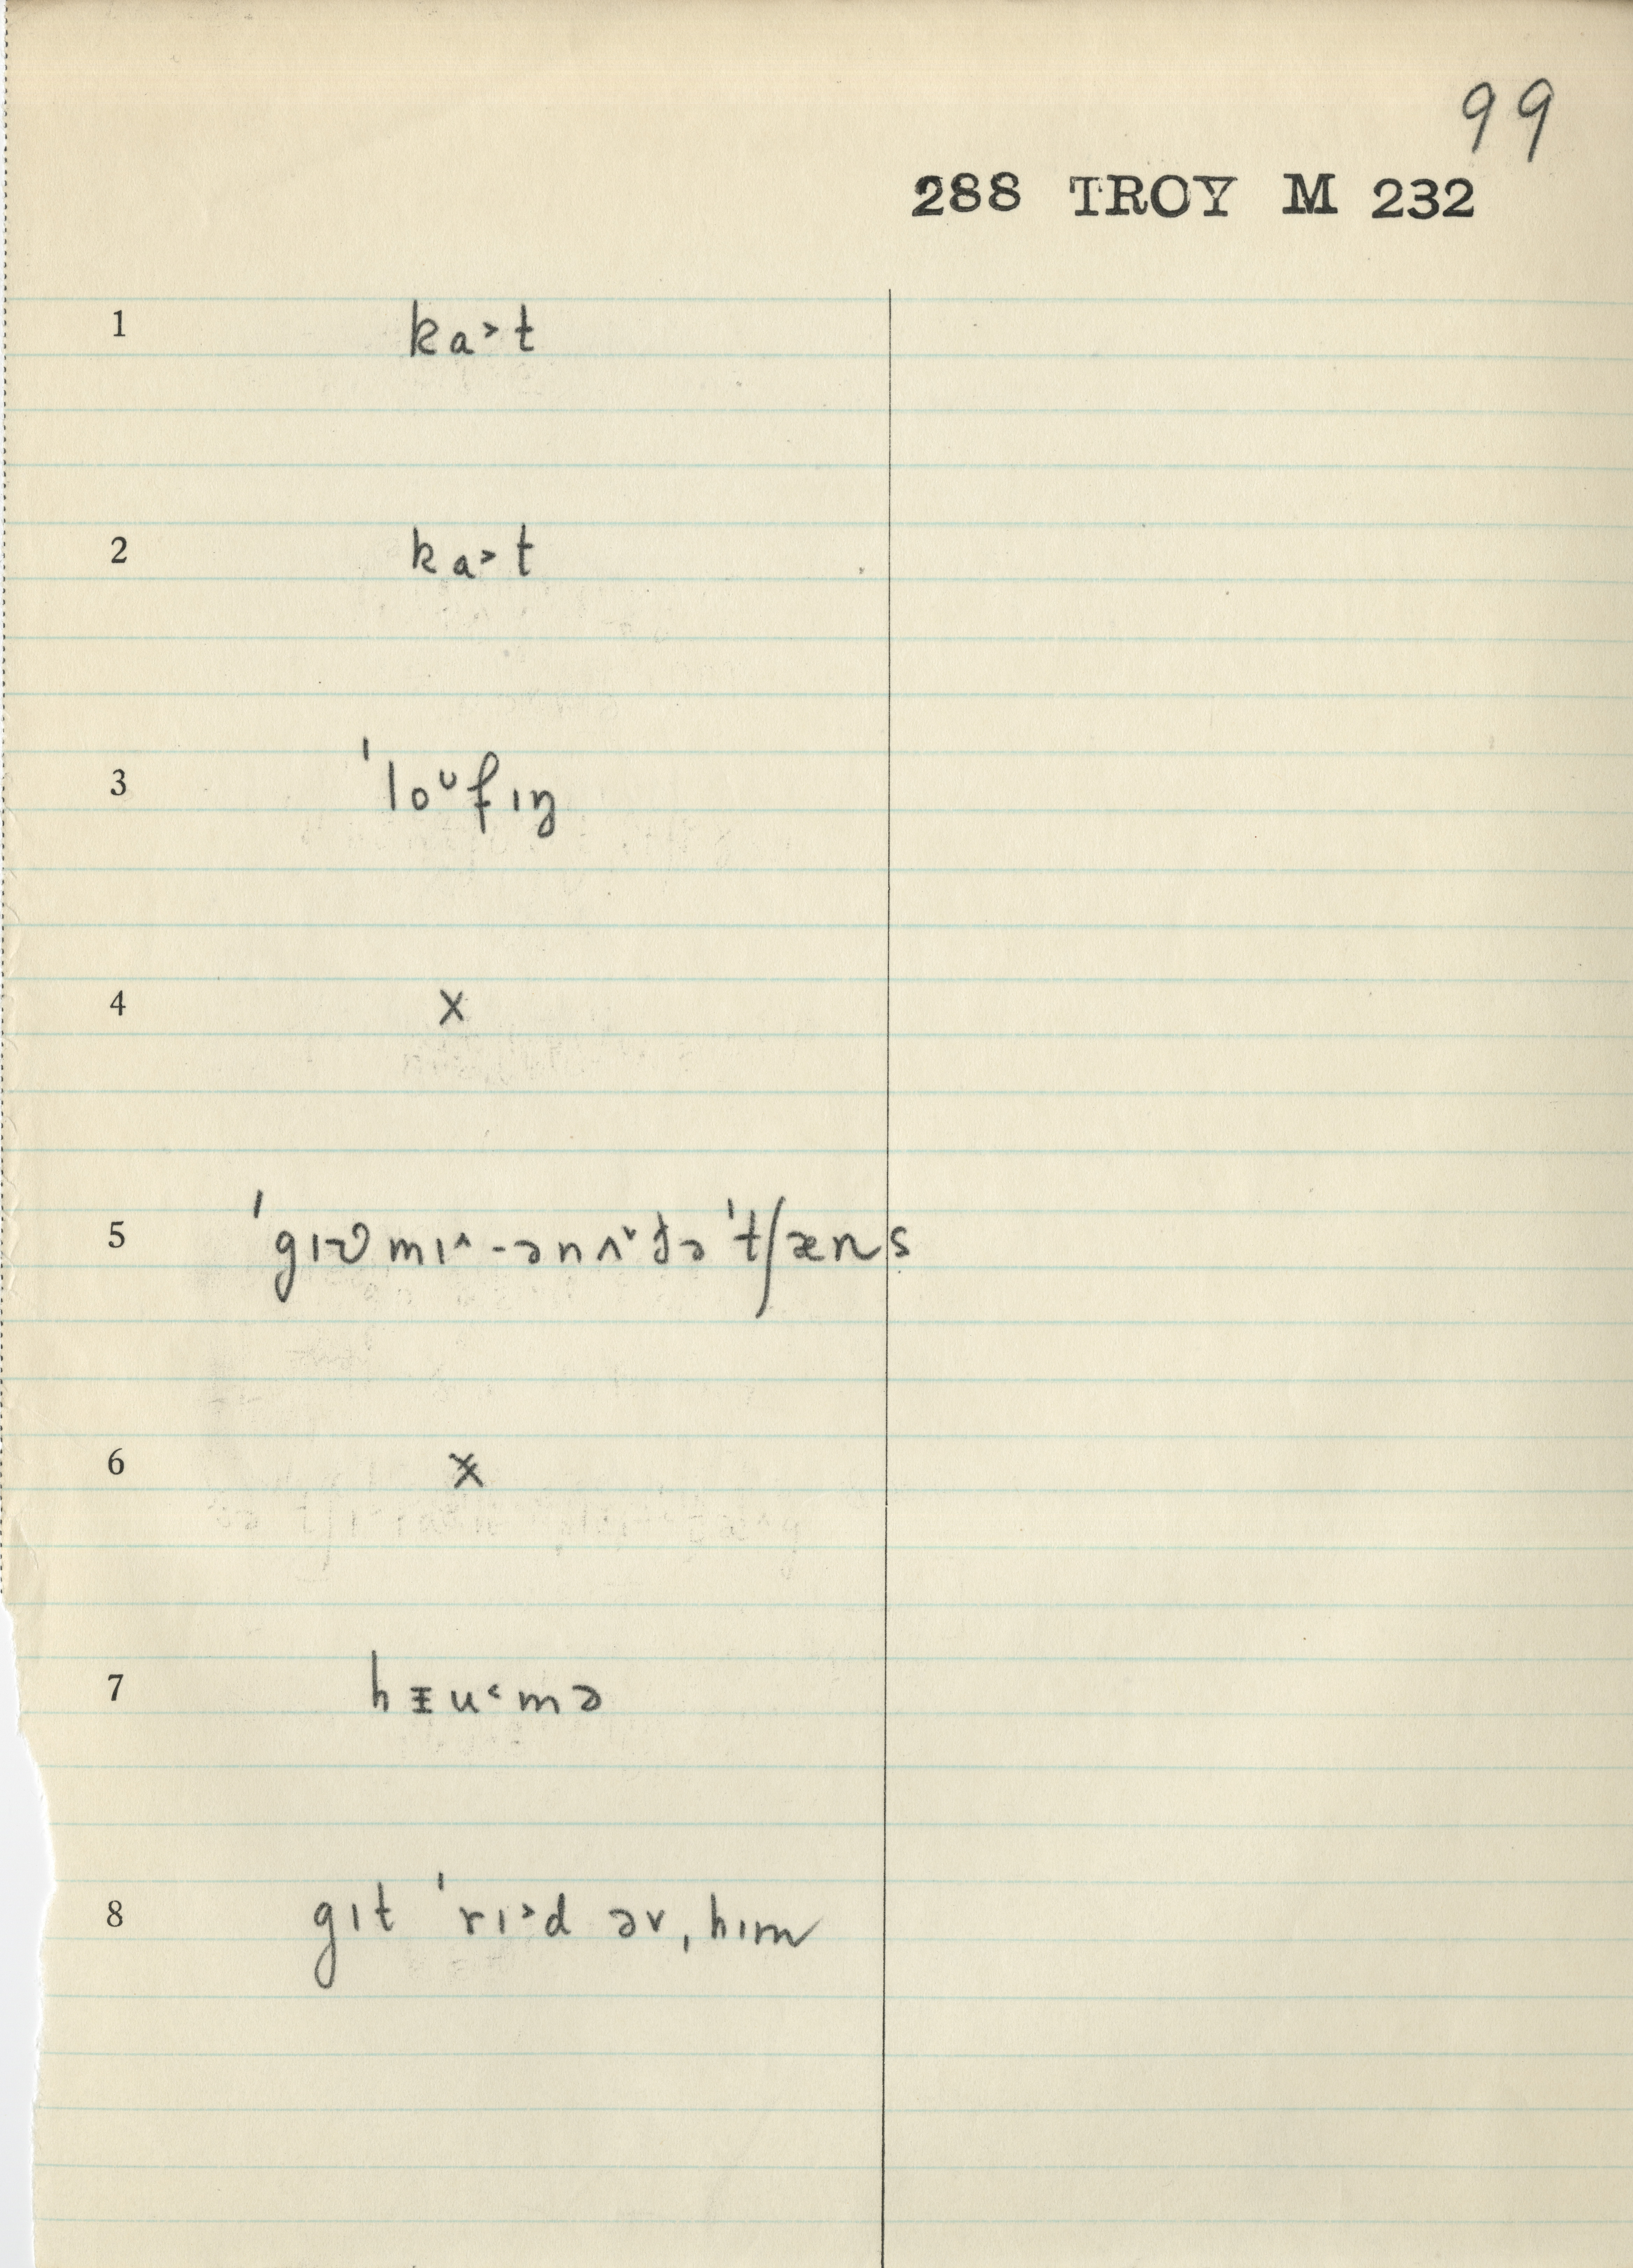 99
288 TROY M 232
1 ka˃t
2 ka˃t
3 ˈloᶷfɪŋ
4 x
5 ˈgɪv mɪ˄-ənʌ˅ðə ˈtʃæns
6 x
7 hᵻu˂mə
8 gɪt ˈrɪ˃d əv ˌhɪm